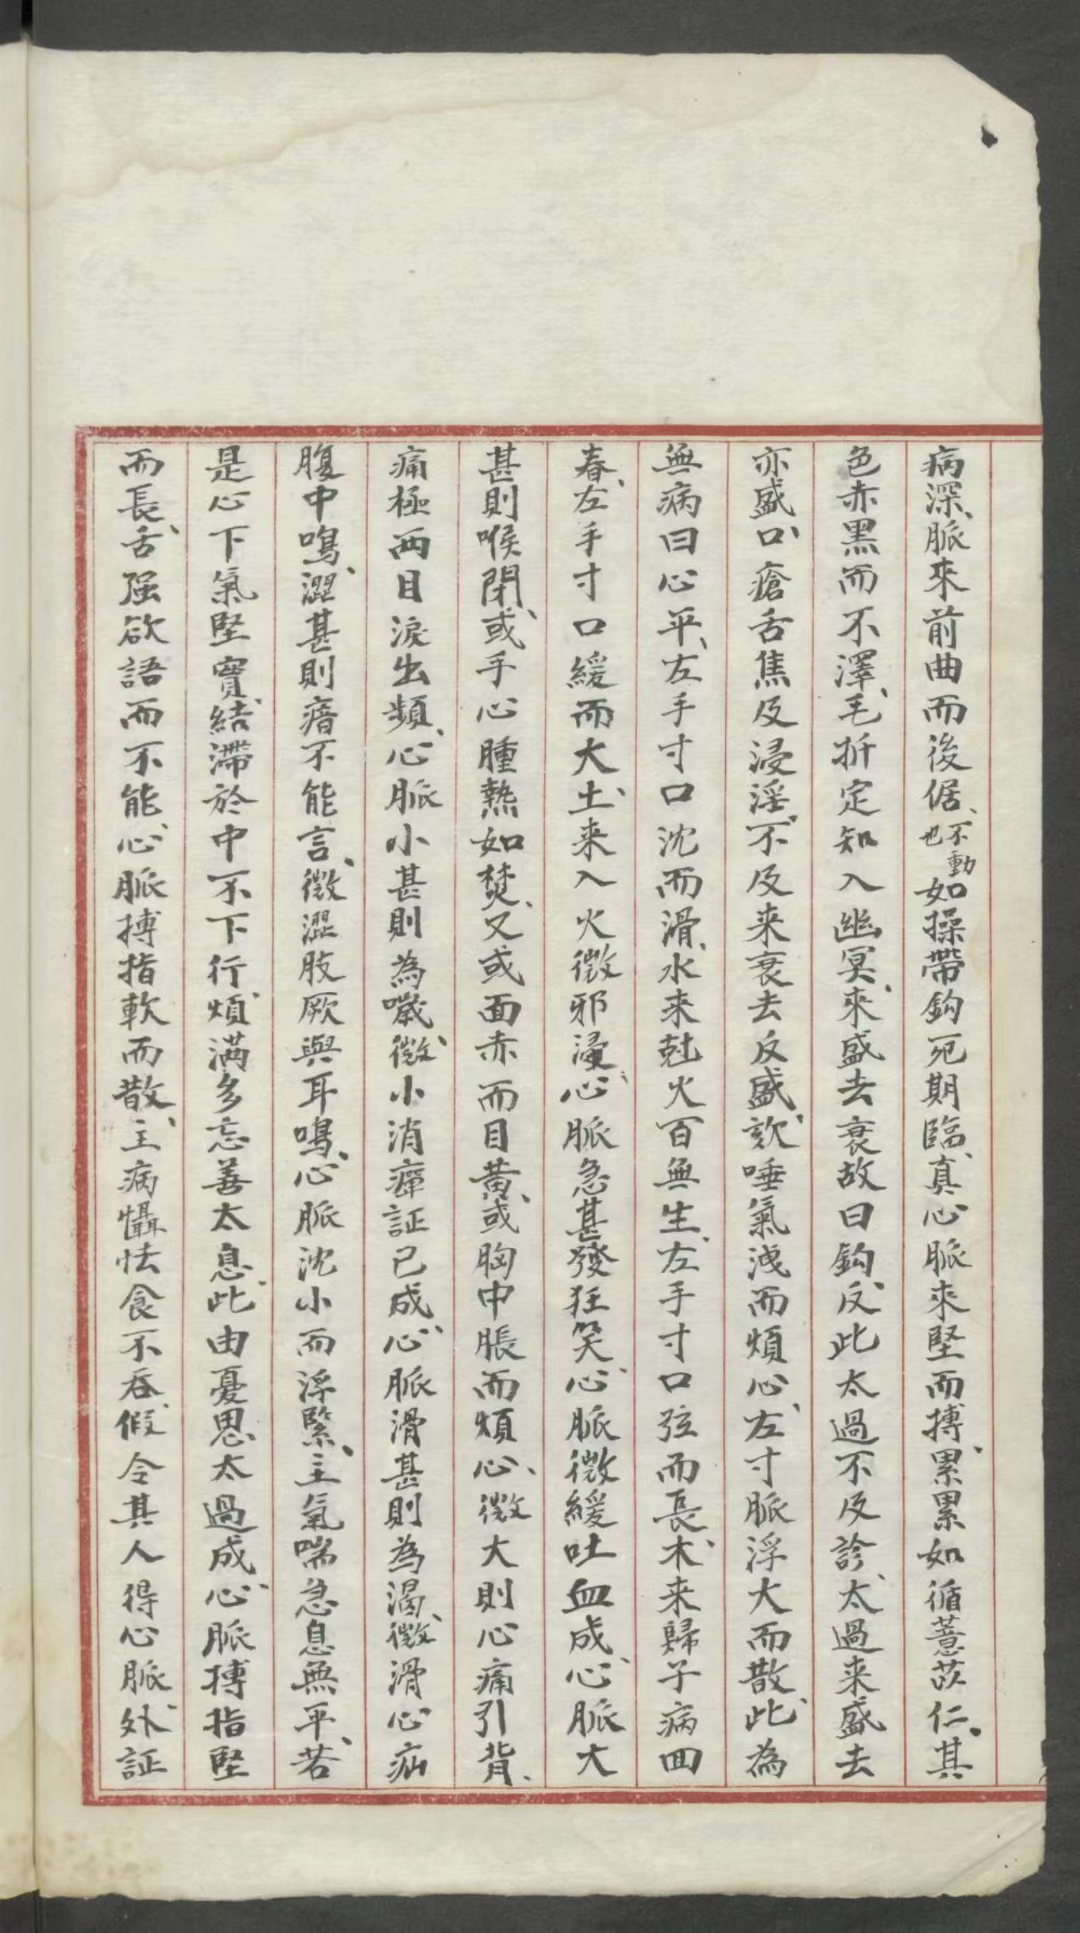 病深、脈來前曲而後倨、不動也如操帶鈎死期臨、真心脈來堅而搏、累累如循薏苡仁、其
色赤黑而不澤、毛折定知入幽冥、來盛去衰故曰鈎、反此太過不及診、太過来盛去
亦盛、口瘡舌焦及浸淫、不及来衰去反盛、欬唾氣洩而煩心、左寸脈浮大而散、此為
無病曰心平、左手寸口沈而滑、水来尅火百無生、左手寸口弦而長、木来歸子病回
春、左手寸口緩而大、土来入火微邪漫、心脈急甚發狂笑、心脈微緩吐血成、心脈大
甚則喉閉、或手心腫熱如焚、又或面赤而目黃、或胸中脹而煩心、微大則心痛引背、
痛極両目淚出頻、心脈小甚則為噦、微小消癉証已成、心脈滑甚則為渴、微滑心疝
腹中鳴、澀甚則瘖不能言、微澀肢厥與耳鳴、心脈沈小而浮緊、主氣喘急息無平、若
是心下氣堅實、結滯於中不下行、煩滿多忘善太息、此由憂思太過成、心脈搏指堅
而長、舌强欲語而不能、心脈搏指軟而散、主病懾怯食不吞、假令其人得心脈、外証